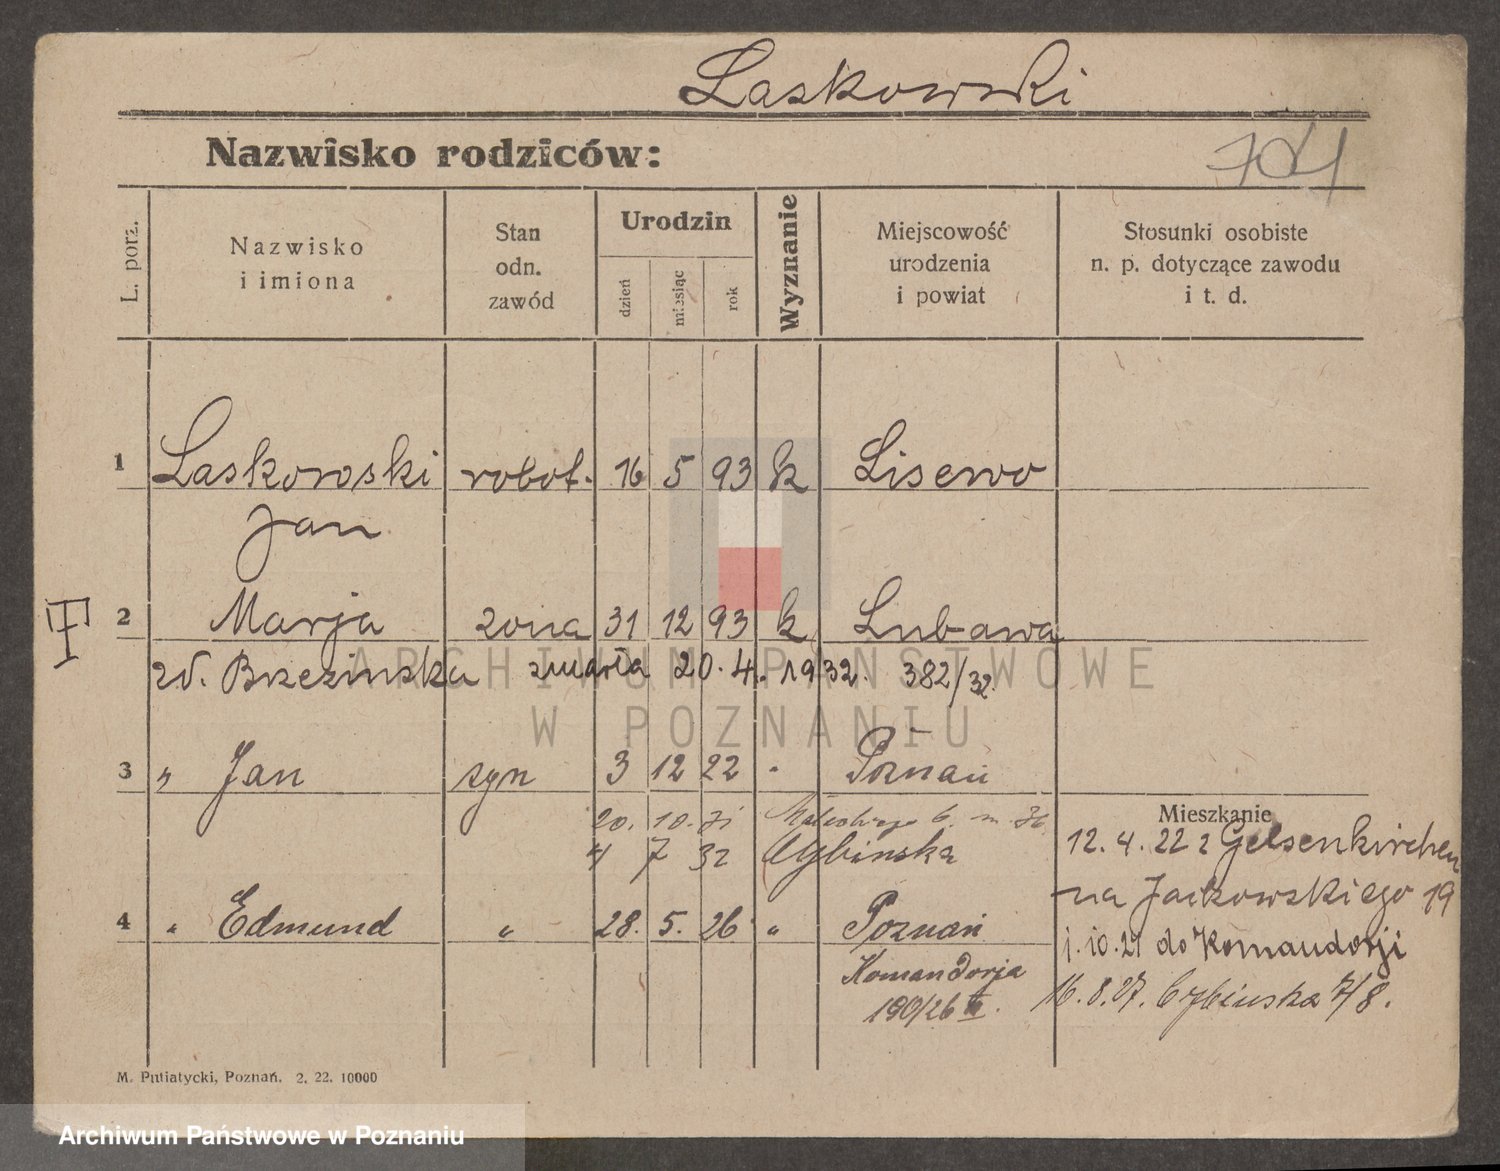 Laskowski
Nazwisko rodziców:
L. porz.
Nazwisko
i imiona
Stan
odn.
zawód
Urodzin
dzień
miesiąc
rok
Wyznanie
Miejscowość
urodzenia
i powiat
Stosunki osobiste
n. p. dotyczące zawodu
i t. d.
1 Laskowski robot. 16 5 93 k Lisewo
Jan
2 Marja żona 31 12 93 k Lubawa
zd. Brzezinska zmarła 20. 4. 1932. 382/32.
ARCHIWUM PAŃSTWOWE
W POZNANIU
3 „ Jan syn 3 12 22 " Poznań
20. 10. 31 6. m.
4 7 32 Cybinska
4 „ Edmund „ 28. 5. 26 „ Poznań
Komandorja
190/26
Mieszkanie
12. 4. 22 z Gelsenkirchen
na Jackowskiego 19
1. 10. 21 do Komandorji
16. 8. 27. Cybinska 7/8.
M. Putiatycki, Poznań. 2. 22. 10000
Archiwum Państwowe w Poznaniu